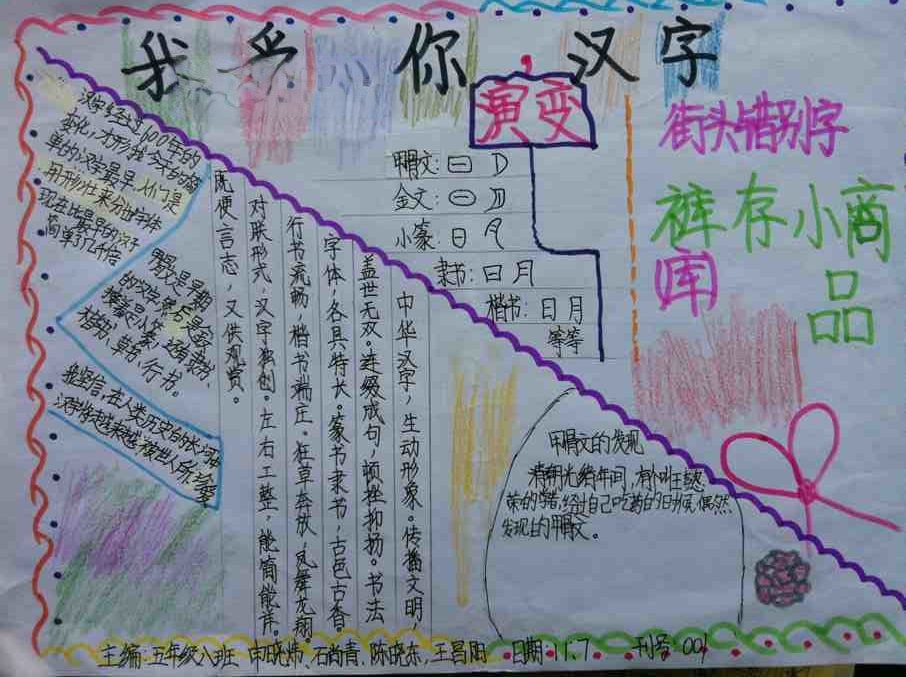 我爱你汉字
演变
甲骨文:日
金文:
小篆:日
隶书:日月
楷书:日月
等等
街头错别字
裤存小商
(库)
品
汉字经过6100年的
变化,才形成今天的简
单的汉字最早,人们是
用形状来分出字体
现在比最早的汉子
简单3亿几千倍
甲骨文是早期
的汉字然后是金文
接着是小篆,还有隶书,
楷书,小草书,行书。
我坚信,在人类历史的长河中
汉字将越来越被世人所珍爱
中华汉字,生动形象。传播文明,
盖世无双。连缀成句,顿挫抑扬。书法
字体,各具特长。篆书隶书,古色古香
行书流畅,楷书端庄。狂草奔放,凤舞龙翔。
对联形式,汉字独创。左右工整,能简能详。
既便言志,又供观赏。
甲骨文的发现
清朝光绪年间,有个叫王懿
荣的学者,经过自己吃药的日候,偶然
发现的甲骨文。
主编:五年级八班 申晓炜,石尚青,陈晓东,王昌阳 日期:11.7 刊号:001